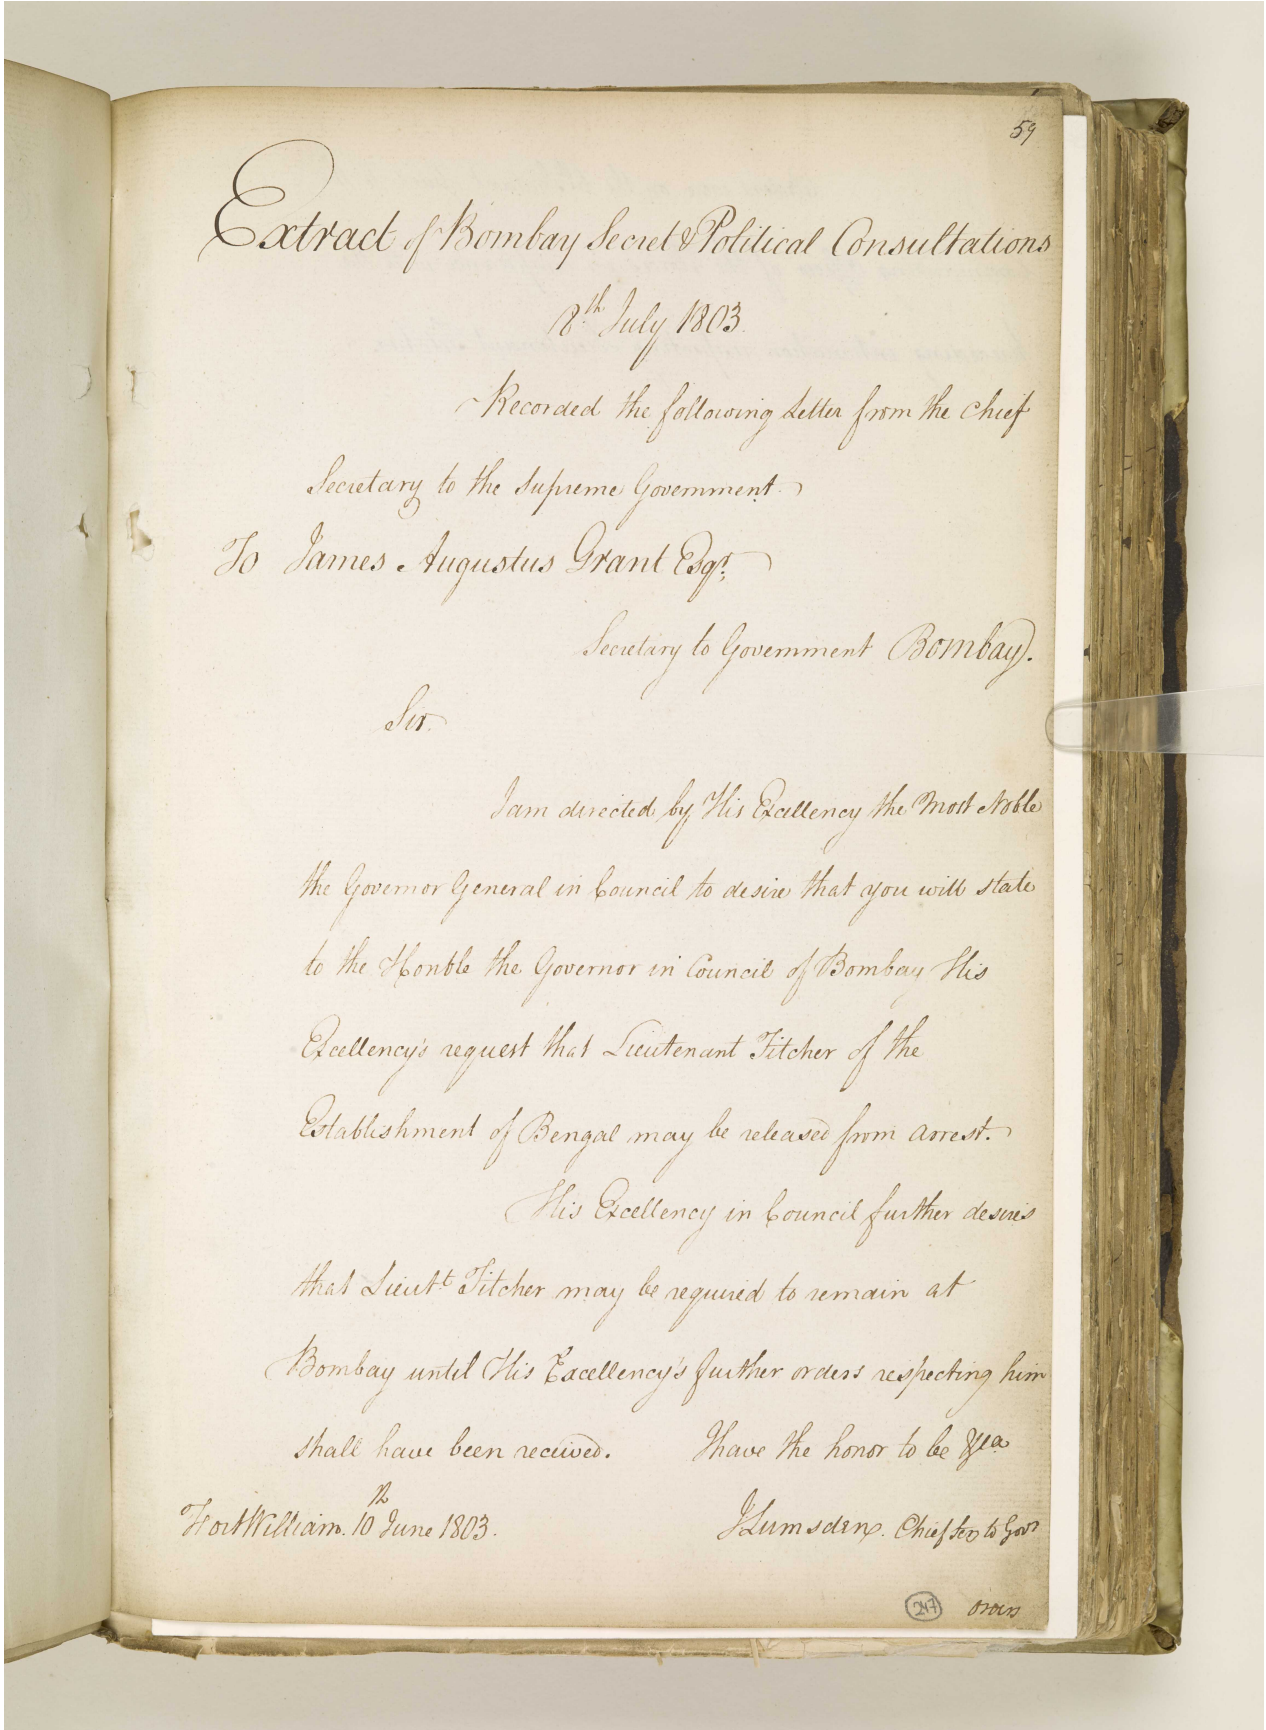 59
Extract of Bombay Secret & Political Consultations
8th July 1803.
Recorded the following Letter from the Chief
Secretary to the Supreme Government.
To James Augustus Grant Esqr.
Secretary to Government Bombay.
Sir.
I am directed by His Excellency the Most Noble
the Governor General in Council to desire that you will state
to the Honble the Governor in Council of Bombay His
Excellency's request that Lieutenant Fitcher of the
Establishment of Bengal may be released from arrest.
His Excellency in Council further desires
that Lieutt Fitcher may be required to remain at
Bombay until His Excellency's further orders respecting him
shall have been received. I have the honor to be &ca
Fort William. 10th June 1803.
J Lumsden. Chief Sey to Govt
247